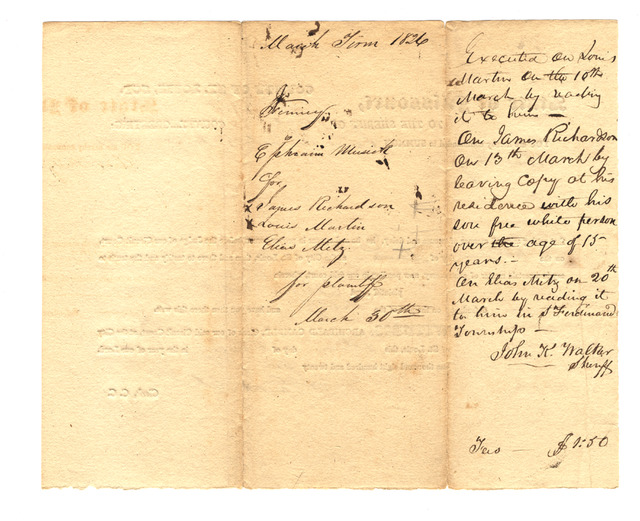 March Term 1826
Winney
Ephraim Musick
for
James Richardson
Louis Martin
Elias Metz.
for plantff
March 30th
Executed on Louis
Martin on the 10th
March by reading
it to him —
On James Richardson
on 13th March by
leaving Copy at his
residence with his
son free white person
over the age of 15
years. —
On Elias Metz on 20th
March by reading it
to him in St Ferdinand
Township —
John K. Walker
Sheriff
Fees — $1.50